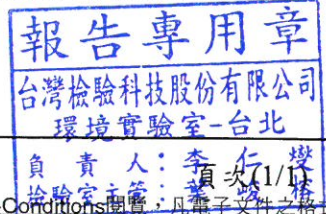 報告專用章
台灣檢驗科技股份有限公司
環境實驗室-台北
負責人：李仁燮
頁次(1/1)
檢驗室主管：
Conditions閱覽，凡電子文件之格